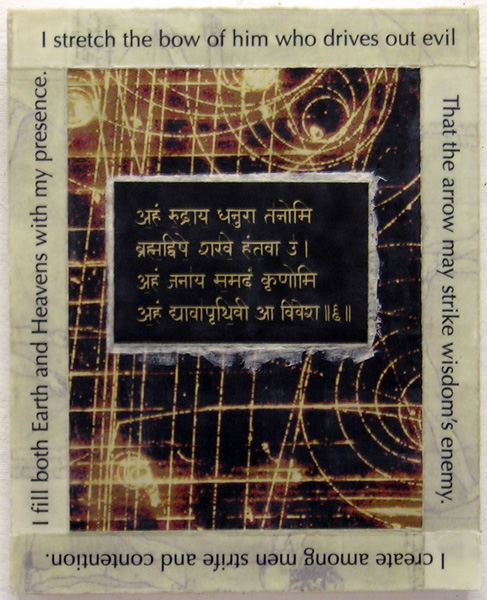 I stretch the bow of him who drives out evil
That the arrow may strike wisdom's enemy.
I create among men strife and contention.
I fill both Earth and Heavens with my presence.
अ॒हं रुद्राय धनुरा तनोमि
ब्रह्मद्विषे शरवे हंतवा उ॑।
अहं जनाय समदं कृणोमि
अ॒हं द्यावापृथि॒वी आ विवेश॥६॥